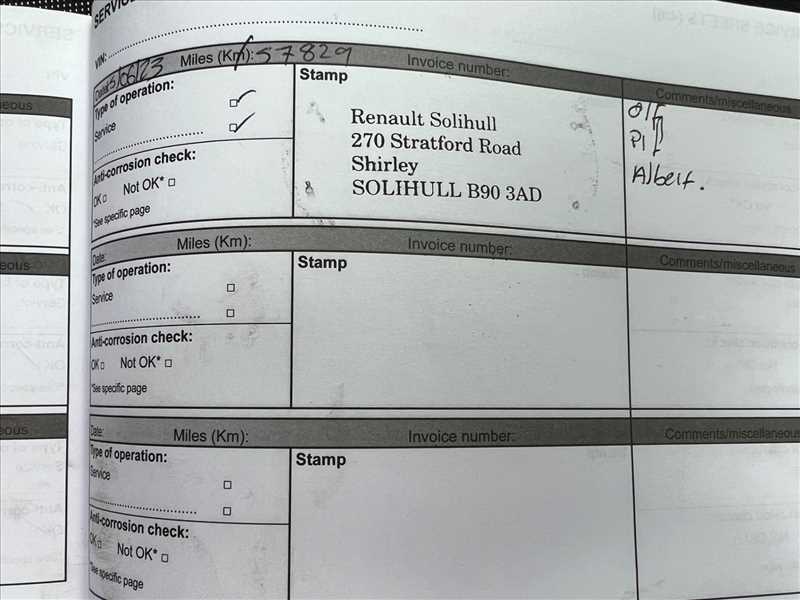 SERVICE
VIN:
Date: Miles (Km): 57829 Invoice number: Comments/miscellaneous
Type of operation:
Service
Anti-corrosion check:
OK Not OK*
*See specific page
Stamp
Renault Solihull
270 Stratford Road
Shirley
SOLIHULL B90 3AD
Albert.
Date: Miles (Km): Invoice number: Comments/miscellaneous
Type of operation:
Service
Anti-corrosion check:
OK Not OK*
*See specific page
Stamp
Date: Miles (Km): Invoice number: Comments/miscellaneous
Type of operation:
Service
Anti-corrosion check:
OK Not OK*
*See specific page
Stamp